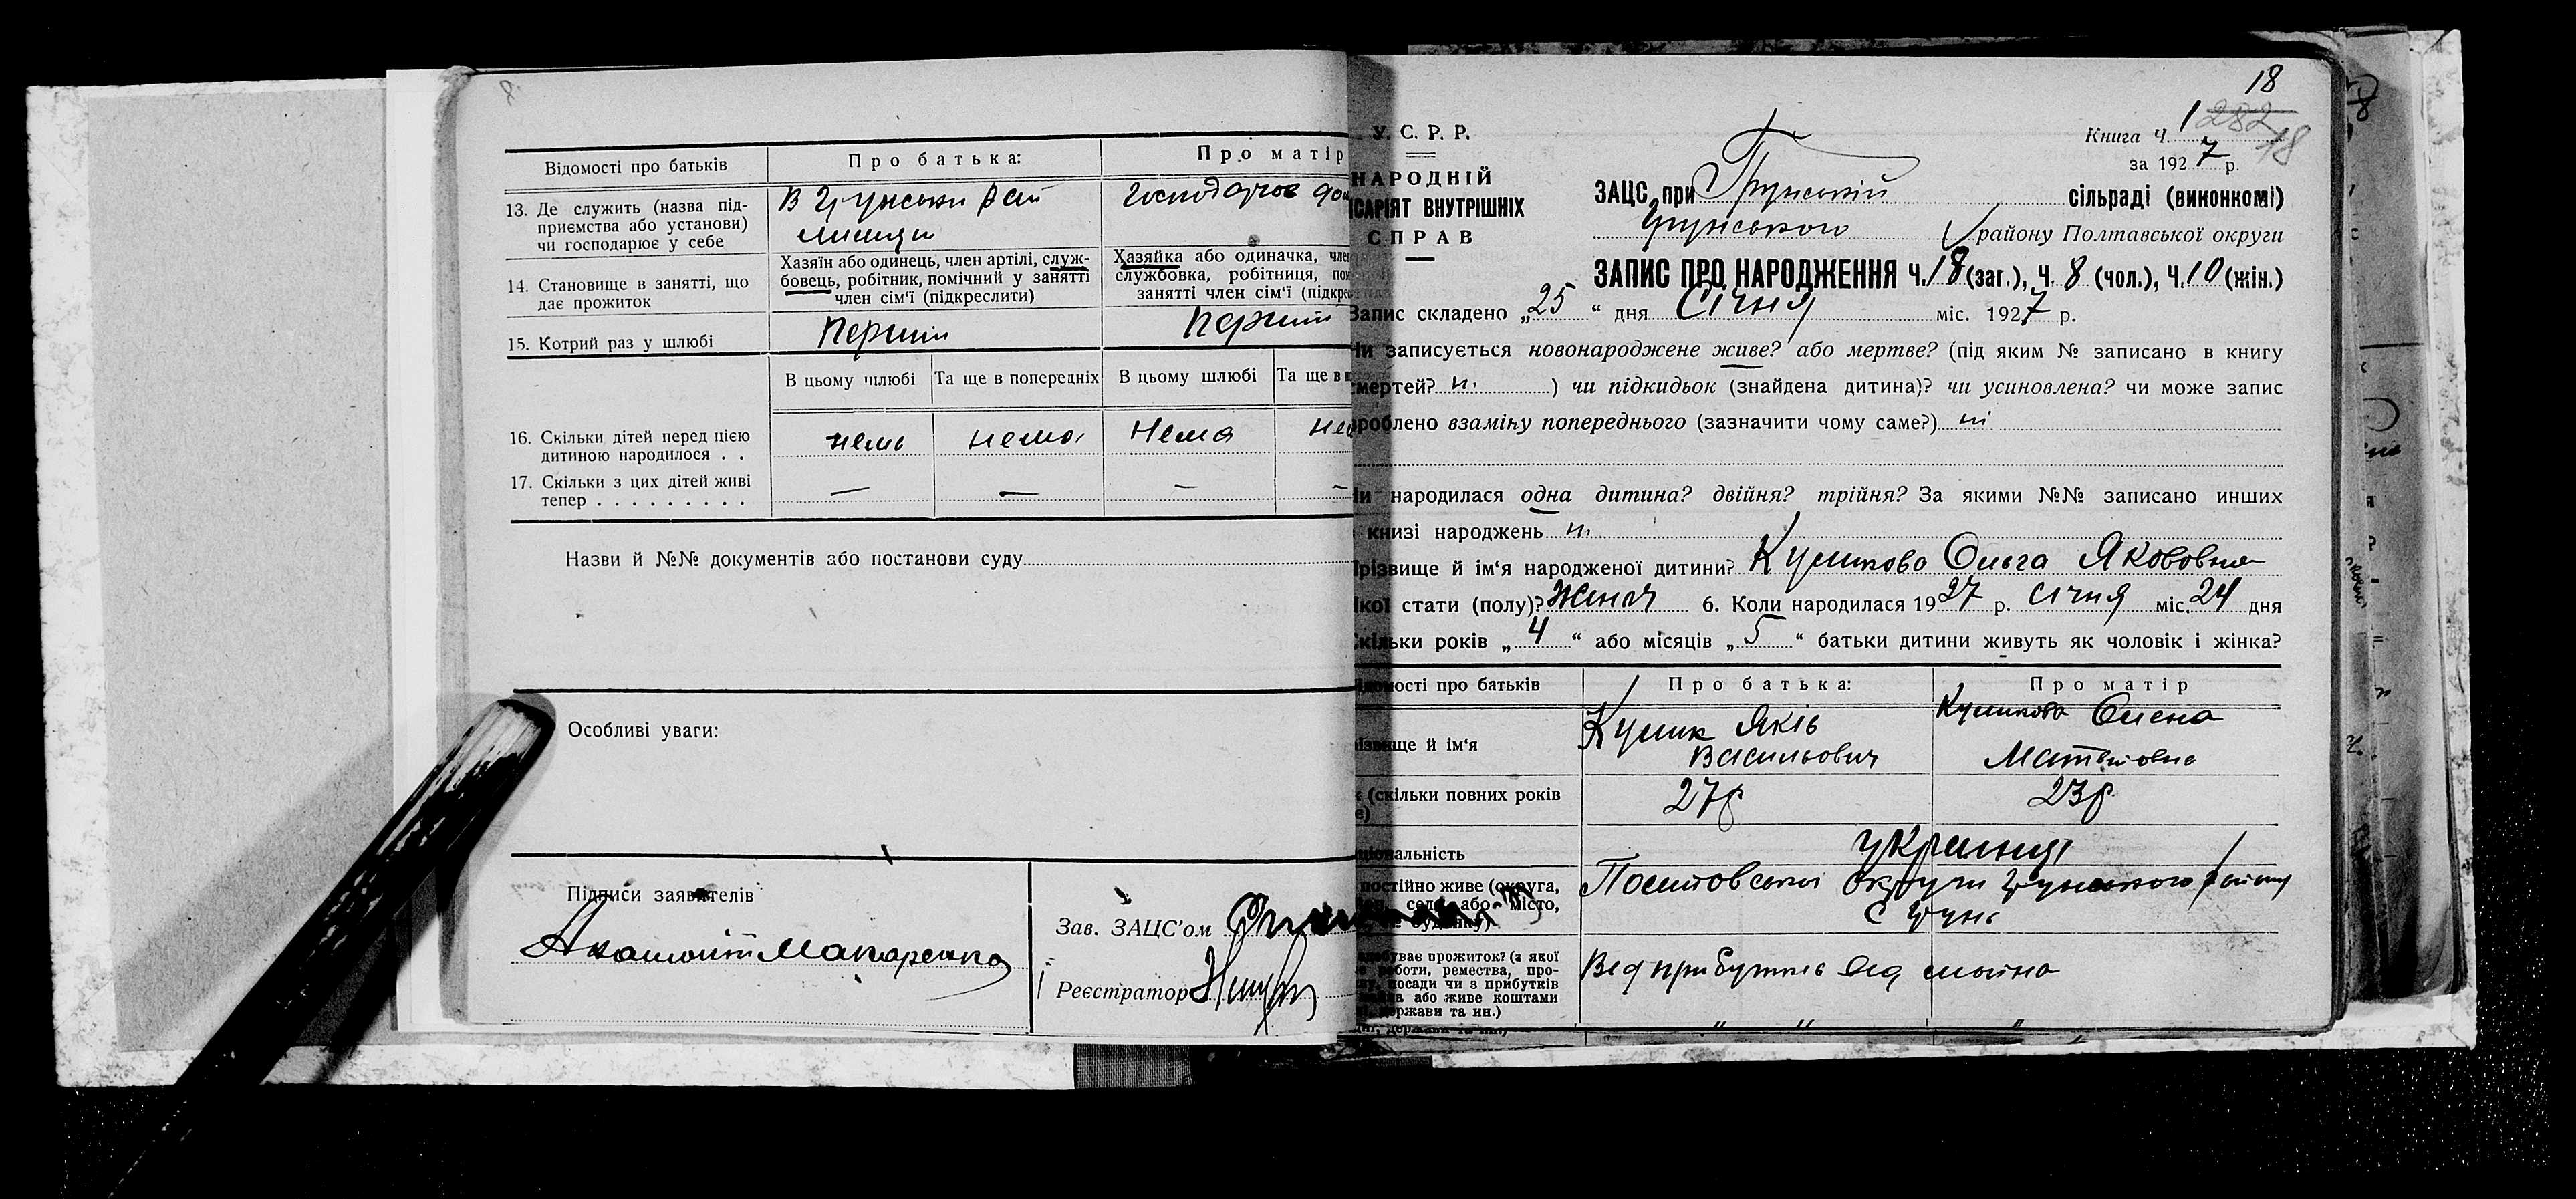 Відомості про батьків
Про батька:
Про матір
13. Де служить (назва під-
приємства або установи)
чи господарює у себе
В Грунськи рай
14. Становище в занятті, що
дає прожиток
Хазяїн або одинець, член артілі, служ-
бовець, робітник, помічний у занятті
член сім'ї (підкреслити)
Хазяйка або одиначка, член
службовка, робітниця, по
занятті член сім'ї (підкре
15. Котрий раз у шлюбі
Перший
Перший
В цьому шлюбі
Та ще в попередніх
В цьому шлюбі
Та ще в п
16. Скільки дітей перед цією
дитиною народилося . .
нема
нема
Нема
17. Скільки з цих дітей живі
тепер . . . . . . . . .
—
—
—
—
Назви й №№ документів або постанови суду
Особливі уваги:
Підписи заявителів
Макаренко
Зав. ЗАЦС'ом
Реєстратор
18
У. С. Р. Р.
НАРОДНІЙ
САРІЯТ ВНУТРІШНІХ
СПРАВ
Книга Ч. 1 282 18
за 1927 р.
ЗАЦС при Грунській сільраді (виконкомі)
Грунського району Полтавської округи
ЗАПИС ПРО НАРОДЖЕННЯ Ч. 18 (заг.), Ч. 8 (чол.), Ч. 10 (жін.)
Запис складено „25“ дня Січня міс. 1927 р.
Чи записується новонароджене живе? або мертве? (під яким № записано в книгу
смертей? ні ) чи підкидьок (знайдена дитина)? чи усиновлена? чи може запис
зроблено взаміну попереднього (зазначити чому саме?) ні
Чи народилася одна дитина? двійня? трійня? За якими №№ записано инших
книзі народжень ні
Прізвище й ім'я народженої дитини? Куликова Ольга Якововна
Якої стати (полу)? Женся 6. Коли народилася 1927 р. січня міс. 24 дня
Скільки років „4“ або місяців „5“ батьки дитини живуть як чоловік і жінка?
Відомості про батьків
Про батька:
Про матір
різвище й ім'я
Кулик Яків
Васильович
Куликова Олена
Матвіовна
(скільки повних років
27р
23р
ціональність
українці
постійно живе (округа,
село або місто,
будинку)
Полтовської округи Грунського району
с Грунь
здобуває прожиток? (з якої
роботи, ремества, про-
посади чи в прибутків
майна або живе коштами
держави та ин.)
Від прибутків від майна